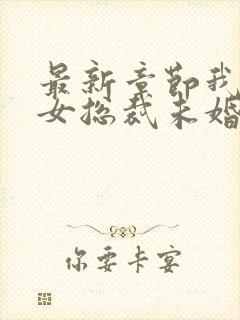 最新章节我
女总裁未婚
你要卡宴